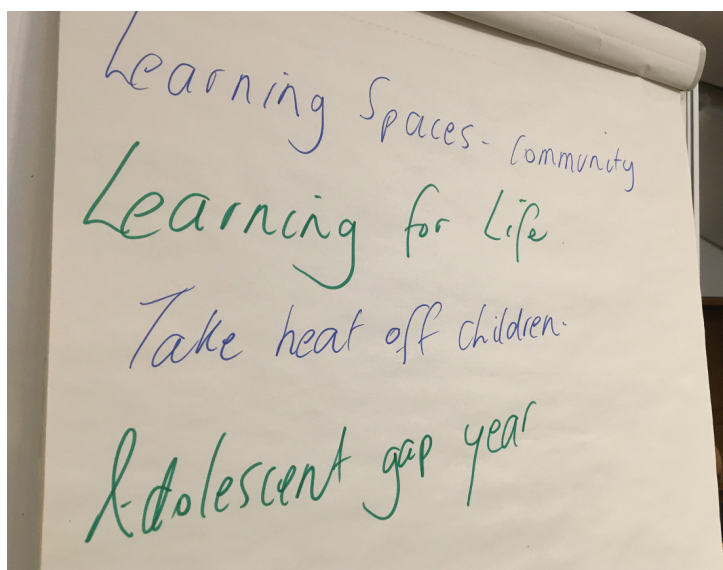 Learning Spaces - Community
Learning for Life
Take heat off children.
Adolescent gap year